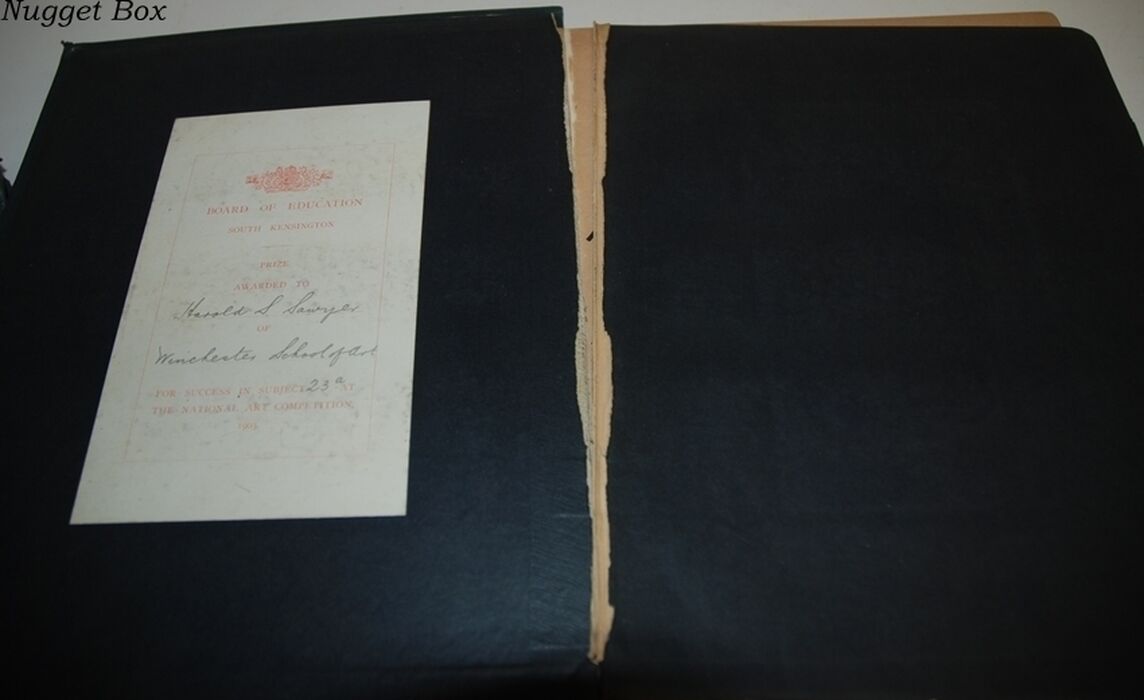 Nugget Box
BOARD OF EDUCATION
SOUTH KENSINGTON
PRIZE
AWARDED TO
Harold S. Sawyer
OF
Winchester School of Art
FOR SUCCESS IN SUBJECT 23a AT
THE NATIONAL ART COMPETITION,